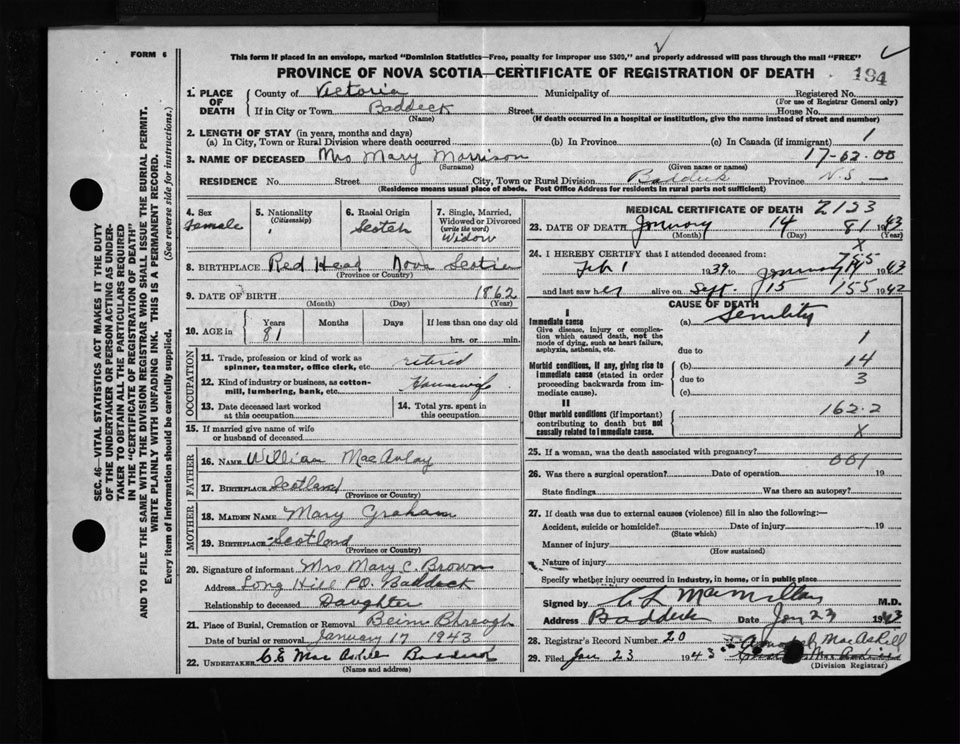 FORM 6
This form if placed in an envelope, marked "Dominion Statistics—Free, penalty for improper use $300," and properly addressed will pass through the mail "FREE"
PROVINCE OF NOVA SCOTIA—CERTIFICATE OF REGISTRATION OF DEATH
194
SEC. 46—VITAL STATISTICS ACT MAKES IT THE DUTY
OF THE UNDERTAKER OR PERSON ACTING AS UNDER-
TAKER TO OBTAIN ALL THE PARTICULARS REQUIRED
IN THE "CERTIFICATE OF REGISTRATION OF DEATH"
AND TO FILE THE SAME WITH THE DIVISION REGISTRAR WHO SHALL ISSUE THE BURIAL PERMIT.
WRITE PLAINLY WITH UNFADING INK. THIS IS A PERMANENT RECORD.
Every item of Information should be carefully supplied. (See reverse side for instructions.)
1. PLACE OF DEATH
County of Victoria Municipality of Registered No.
(For use of Registrar General only)
If in City or Town Baddeck Street House No.
(Name) (If death occurred in a hospital or institution, give the name instead of street and number)
2. LENGTH OF STAY (in years, months and days)
(a) In City, Town or Rural Division where death occurred (b) In Province (c) In Canada (if immigrant) 1
3. NAME OF DECEASED Mrs Mary Morrison 17-62-00
(Surname) (Given name or names)
RESIDENCE No. Street City, Town or Rural Division Baddeck Province N.S.
(Residence means usual place of abode. Post Office Address for residents in rural parts not sufficient)
4. Sex
Female
5. Nationality
(Citizenship)
6. Racial Origin
Scotch
7. Single, Married,
Widowed or Divorced
(write the word)
Widow
8. BIRTHPLACE Red Head Nova Scotia
(Province or Country)
9. DATE OF BIRTH 1862
(Month) (Day) (Year)
10. AGE in
Years Months Days If less than one day old
81 hrs. or min.
OCCUPATION
11. Trade, profession or kind of work as
spinner, teamster, office clerk, etc. retired
12. Kind of industry or business, as cotton-
mill, lumbering, bank, etc. Housewife
13. Date deceased last worked
at this occupation
14. Total yrs. spent in
this occupation
15. If married give name of wife
or husband of deceased
FATHER
16. NAME William MacAulay
17. BIRTHPLACE Scotland
(Province or Country)
MOTHER
18. MAIDEN NAME Mary Graham
19. BIRTHPLACE Scotland
(Province or Country)
20. Signature of informant Mrs Mary C. Brown
Address Long Hill P.O. Baddeck
Relationship to deceased Daughter
21. Place of Burial, Cremation or Removal Beinn Bhreogh
Date of burial or removal January 17 1943
22. UNDERTAKER Baddeck
(Name and address)
MEDICAL CERTIFICATE OF DEATH 2123
23. DATE OF DEATH January 14 81 1943
(Month) (Day) (Year)
x
24. I HEREBY CERTIFY that I attended deceased from: 785
Feb 1 1939 to January 14 1943
and last saw her alive on Sept. 15 155 1942
CAUSE OF DEATH
I
Immediate cause
Give disease, injury or complica-
tion which caused death, not the
mode of dying, such as heart failure,
asphyxia, asthenia, etc.
(a) Senility
due to 1
Morbid conditions, if any, giving rise to
immediate cause (stated in order
proceeding backwards from im-
mediate cause).
(b) 14
due to 3
(c)
II
Other morbid conditions (if important)
contributing to death but not
causally related to immediate cause.
162.2
x
25. If a woman, was the death associated with pregnancy? 001
26. Was there a surgical operation? Date of operation 19
State findings Was there an autopsy?
27. If death was due to external causes (violence) fill in also the following:—
Accident, suicide or homicide? Date of injury 19
(State which)
Manner of injury
(How sustained)
Nature of injury
Specify whether injury occurred in industry, in home, or in public place
Signed by C L MacMillan M.D.
Address Baddeck Date Jan 23 1943
28. Registrar's Record Number 20
29. Filed Jan 23 1943 MacAskill
(Division Registrar)